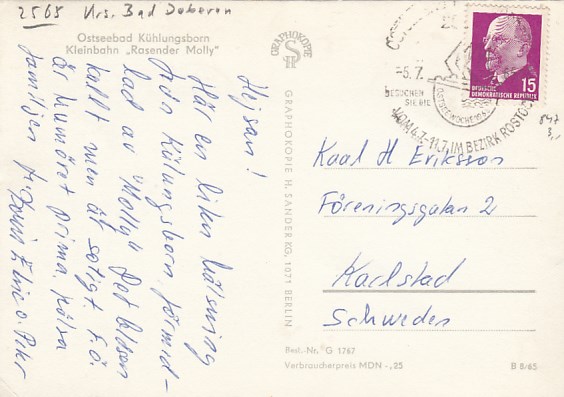 2565 Krs. Bad Doberan
Ostseebad Kühlungsborn
Kleinbahn „Rasender Molly"
GRAPHOKOPIE
SH
GRAPHOKOPIE H. SANDER KG, 1071 BERLIN
Hejsan!
Här en liten hälsning
från Külungsborn förmed-
lad av "Molly". Det blåser
kallt men är soligt. F.ö.
är humöret prima. Hälsa
familjen fr
-6.7.
BESUCHEN
SIE DIE
OSTSEEWOCHE
VOM 4.7.-11.7. IM BEZIRK ROSTOCK
15
DEUTSCHE
DEMOKRATISCHE REPUBLIK
847
3,-
Karl H Eriksson
Föreningsgatan 2
Karlstad
Schweden
Best.-Nr. G 1767
Verbraucherpreis MDN -,25
B 8/65